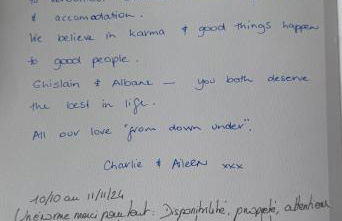 & accomodation.
We believe in karma & good things happen
to good people.
Ghislain & Albane — you both deserve
the best in life.
All our love "from down under".
Charlie & Aileen xxx
10/10 au 11/11/24
Un énorme merci pour tout : Disponibilité, propreté, attention